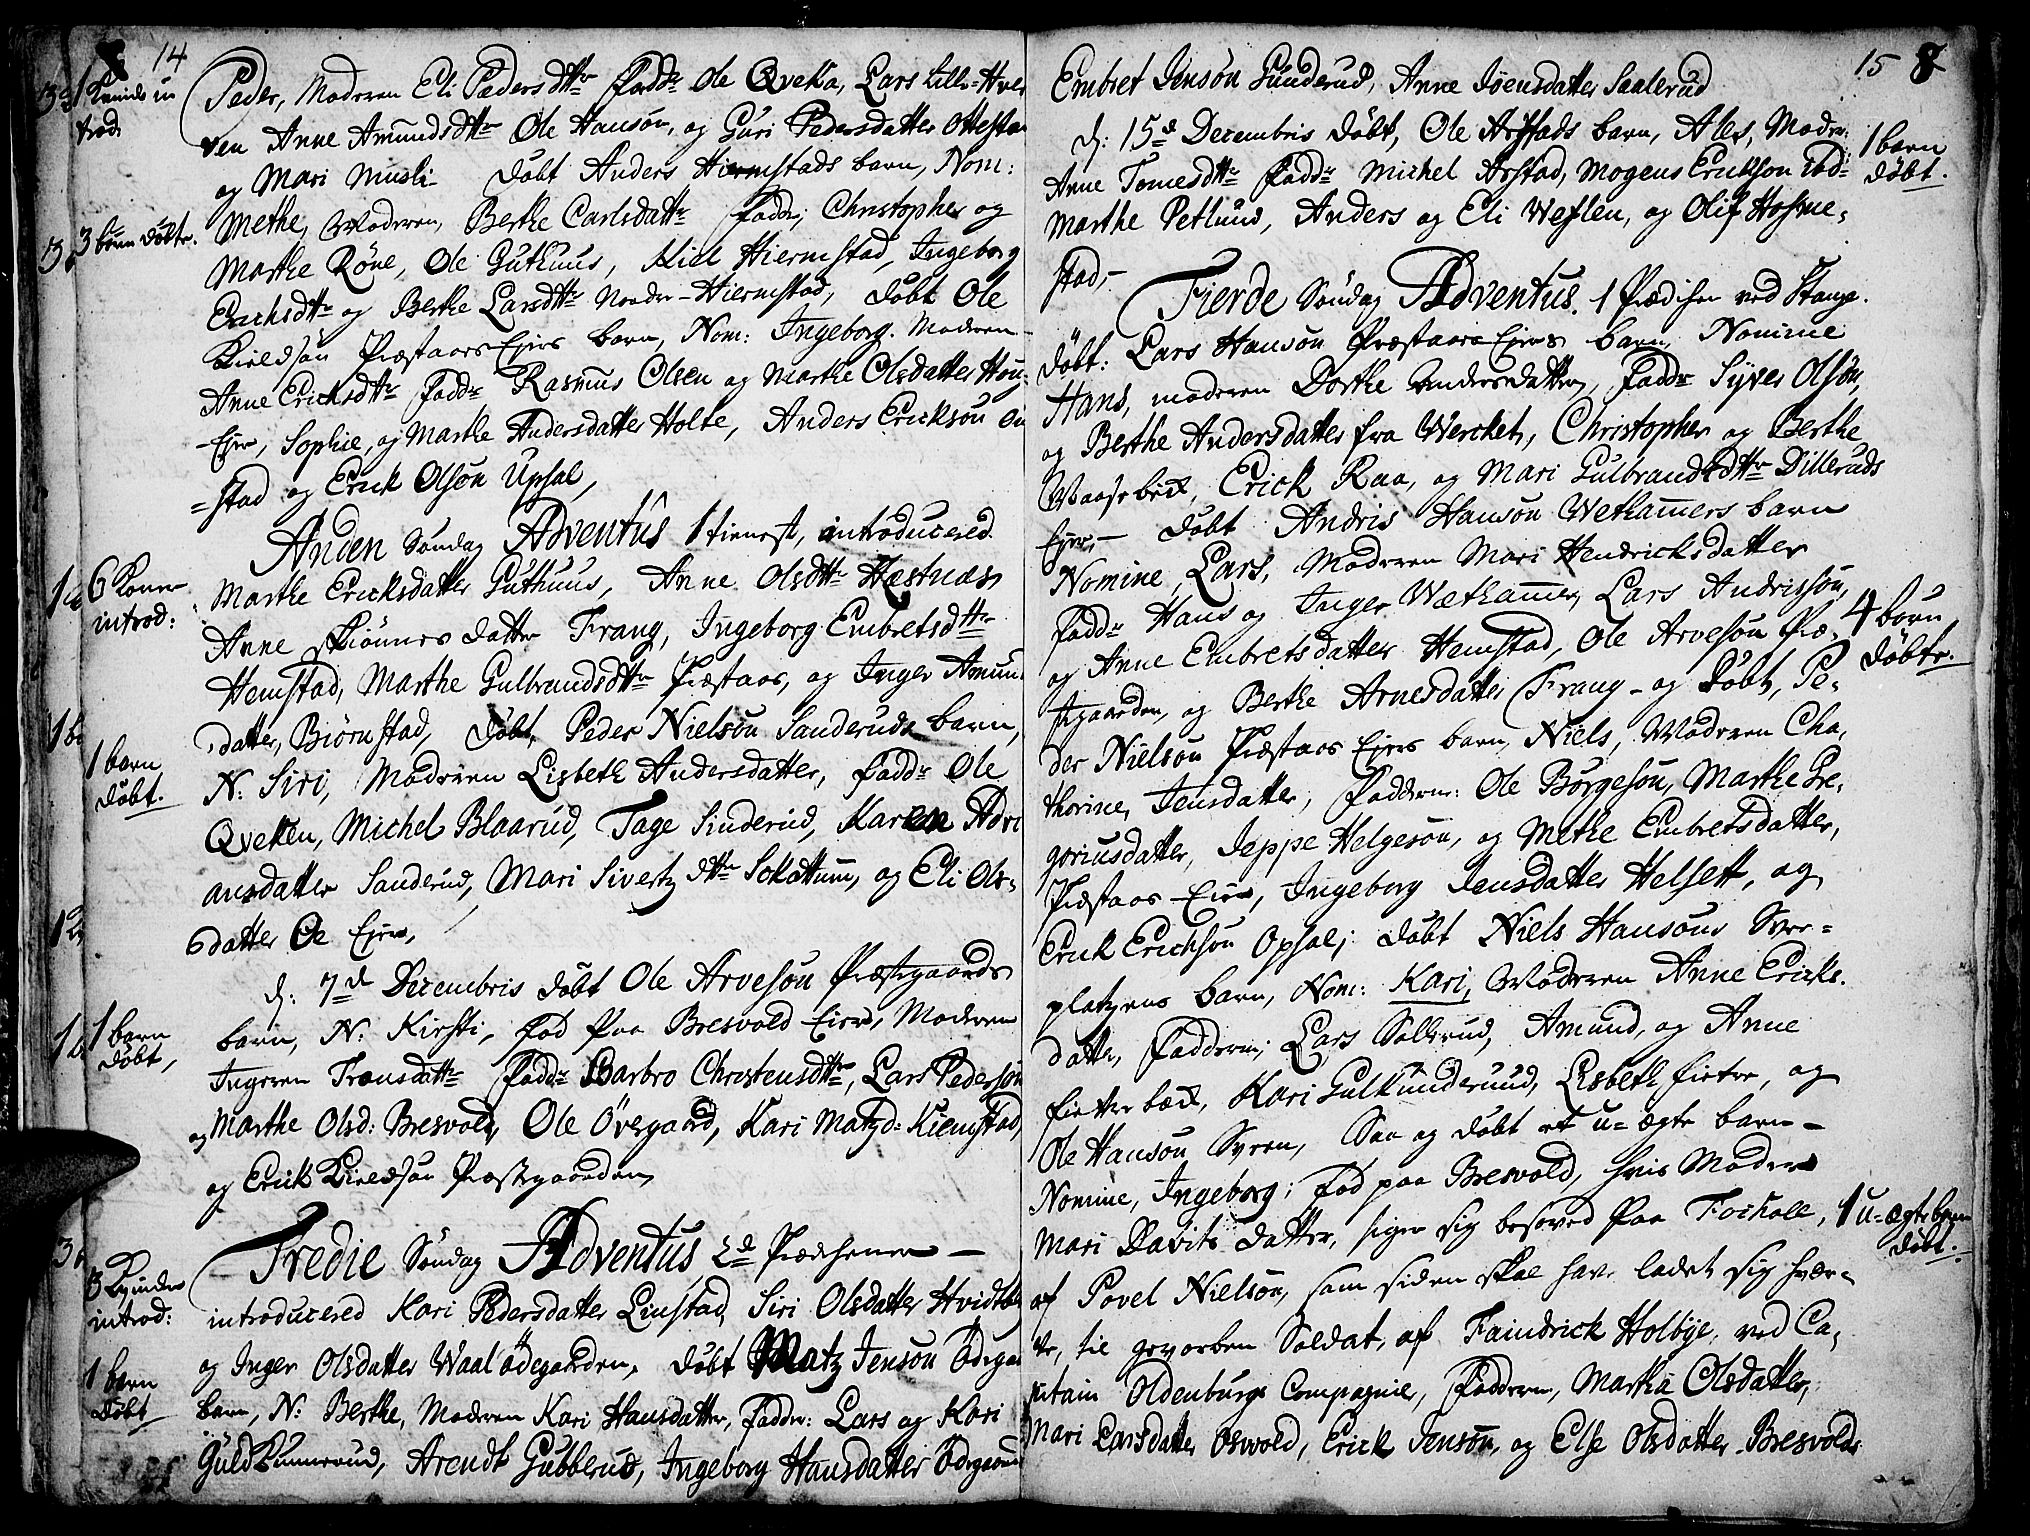 14
Peder, Modren Eli Pedersdttr Faddr Ole Qveka, Lars Lille-Hver
ven Anne Amundsdttr Ole Hanson, og Guri Pedersdatter Ottesta
og Mari Musli døbt Anders Hiermstads barn, Nom:
Methe, Modren, Berthe Carlsdattr Fadd: Christopher og
Marthe Röne, Ole Guthuus, Kield Hiermstad, Ingeborg
Erichsdttr og Berthe Larsdttr Nordr-Hiermstad, døbt Ole
Kieldsøn Præstaars Eiers barn, Nom: Ingeborg. Modren
Anne Ericksdttr Faddr Rasmus Olsen og Marthe Olsdatter
Eier, Sophie, og Marthe Andersdatter Holte, Anders Erickson
=stad og Erick Olsøn Upsal,
Anden Søndag Adventus 1 tienest, introducered
Marthe Ericksdatter Guthuus, Anne Olsdttr Hæstnæs
Anne datter Frang, Ingeborg Embretsdttr
Hemstad, Marthe Gulbrandsdttr Præstaar, og Inger Amun
datter, Biørnstad, døbt, Peder Nielsøn Sanderuds barn,
N: Siri, Modren Lisbeth Andersdatter, Faddr Ole
Qveken, Michel Blaarud, Tage Sinderud, Karen Adri
ansdatter Sanderud, Mari Sivertz dttr Sokattum, og Eli Ols-
datter Oe Eier,
d: 7d Decembris døbt Ole Arvesøn Præstgaards
barn, N: Kirsti, fød paa Bresvold Eier, Modren
Ingeren Tronsdattr Faddr Barbro Christensdttr, Lars Pedersøn
og Marthe Olsd: Bresvold, Ole Övergaard, Kari Matzd: Kiemstad,
og Erick Kieldsøn Præstgaarden,
Tredie Søndag Adventus 2d Prædikener
introducered Kari Pedersdatter Linstad, Siri Olsdatter
og Inger Olsdatter Waalødegarden, døbt Matz Jensøn Ødega
barn, N: Berthe, Modren Kari Hansdatter, Faddr: Lars og Kari
Guldkunnerud, Arendt Gubberud, Ingeborg Hansdatter Ødegaard
introd.
3 børn døbte.
6 Koner
introd:
1 barn
døbt.
1 barn
døbt,
3 Kvinder
introd:
1 barn
døbt
15 8
Embret Jensøn Gunderud, Anne Joensdatter Saalerud
d: 15d Decembris døbt, Ole Arstads barn, Ales, Modr:
Anne Tomesdttr Faddr Michel Arstad, Mogens Erickson ibd-
Marthe Petlund, Anders og Eli Weslen, og Olif Hosme-
stad,
Fierde Søndag Adventus. 1 Prædiken ved Stange.
døbt: Lars Hansøn Præstaars Eiers barn, Nomine
Hans, modren Dorthe Andersdatter, Faddr Syver Olsøn,
og Berthe Andersdatter fra Wercket, Christopher og Berthe
Waasebek, Erick Raa, og Mari Gulbrandsdttr Dilleruds
Eier, døbt Andris Hansøn Wethamers barn
Nomine, Lars, Modren Mari Hendricksdatter
Faddr Hans og Inger Wæthammer, Lars Andrissøn,
og Anne Embretsdatter Hemstad, Ole Arvesøn Præ-
stgaarden, og Berthe Arnesdatter Frang - og døbt, Pe-
der Nielsøn Præstaars Eiers barn, Niels, Modren Cha-
thrine, Jensdatter, Faddrene: Ole Børgesøn, Marthe Gre-
goriusdatter, Jeppe Helgesøn, og Methe Embretsdatter,
Præstaars Eier, Ingeborg Jensdatter Helsett, og
Erick Erichsøn Opsal; døbt Niels Hansøns Svee-
platzens barn, Nom: Kari, Modren Anne Ericks-
datter, Faddrene; Lars Sollerud, Amund, og Anne
fietterbæk, Kari Gulkunderud, Lisbeth fietre, og
Ole Hansøn Svøen, Saa og døbt et u-ægte barn-
Nomine, Ingeborg; fød paa Bresvold, hvis Moder
Mari Davits datter, siger sig besoved paa Fockoll,
af Povel Nielsøn, som siden skal have ladet sig hver-
ve, til hvorben Soldat, af Faindrick Holbye, ved Ca-
pitain Oldenburgs Compagnie, Faddren, Martha Olsdatter,
Mari Larsdatter Osvold, Erick Jensøn, og Else Olsdatter Bresvold
1 barn
døbt.
4 børn
døbte.
1 u-ægte barn
døbt.